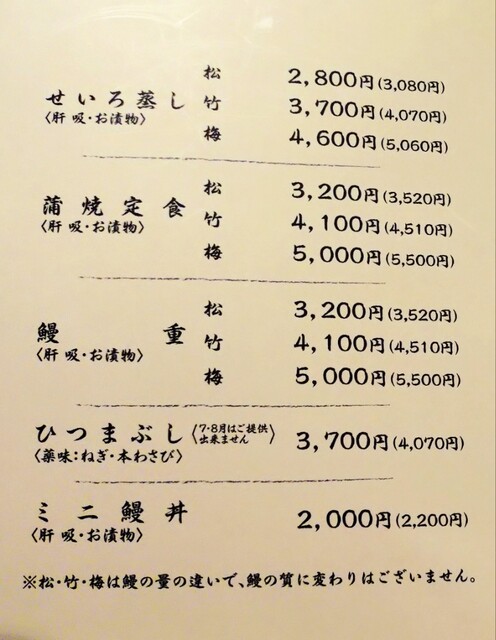 せいろ蒸し 松 2,800円(3,080円)
〈肝 吸・お漬物〉 竹 3,700円(4,070円)
梅 4,600円(5,060円)
蒲焼定食 松 3,200円(3,520円)
〈肝 吸・お漬物〉 竹 4,100円(4,510円)
梅 5,000円(5,500円)
鰻重 松 3,200円(3,520円)
〈肝 吸・お漬物〉 竹 4,100円(4,510円)
梅 5,000円(5,500円)
ひつまぶし 〈7・8月はご提供出来ません〉 3,700円(4,070円)
〈薬味:ねぎ・本わさび〉
ミニ鰻丼 2,000円(2,200円)
〈肝 吸・お漬物〉
※松・竹・梅は鰻の量の違いで、鰻の質に変わりはございません。